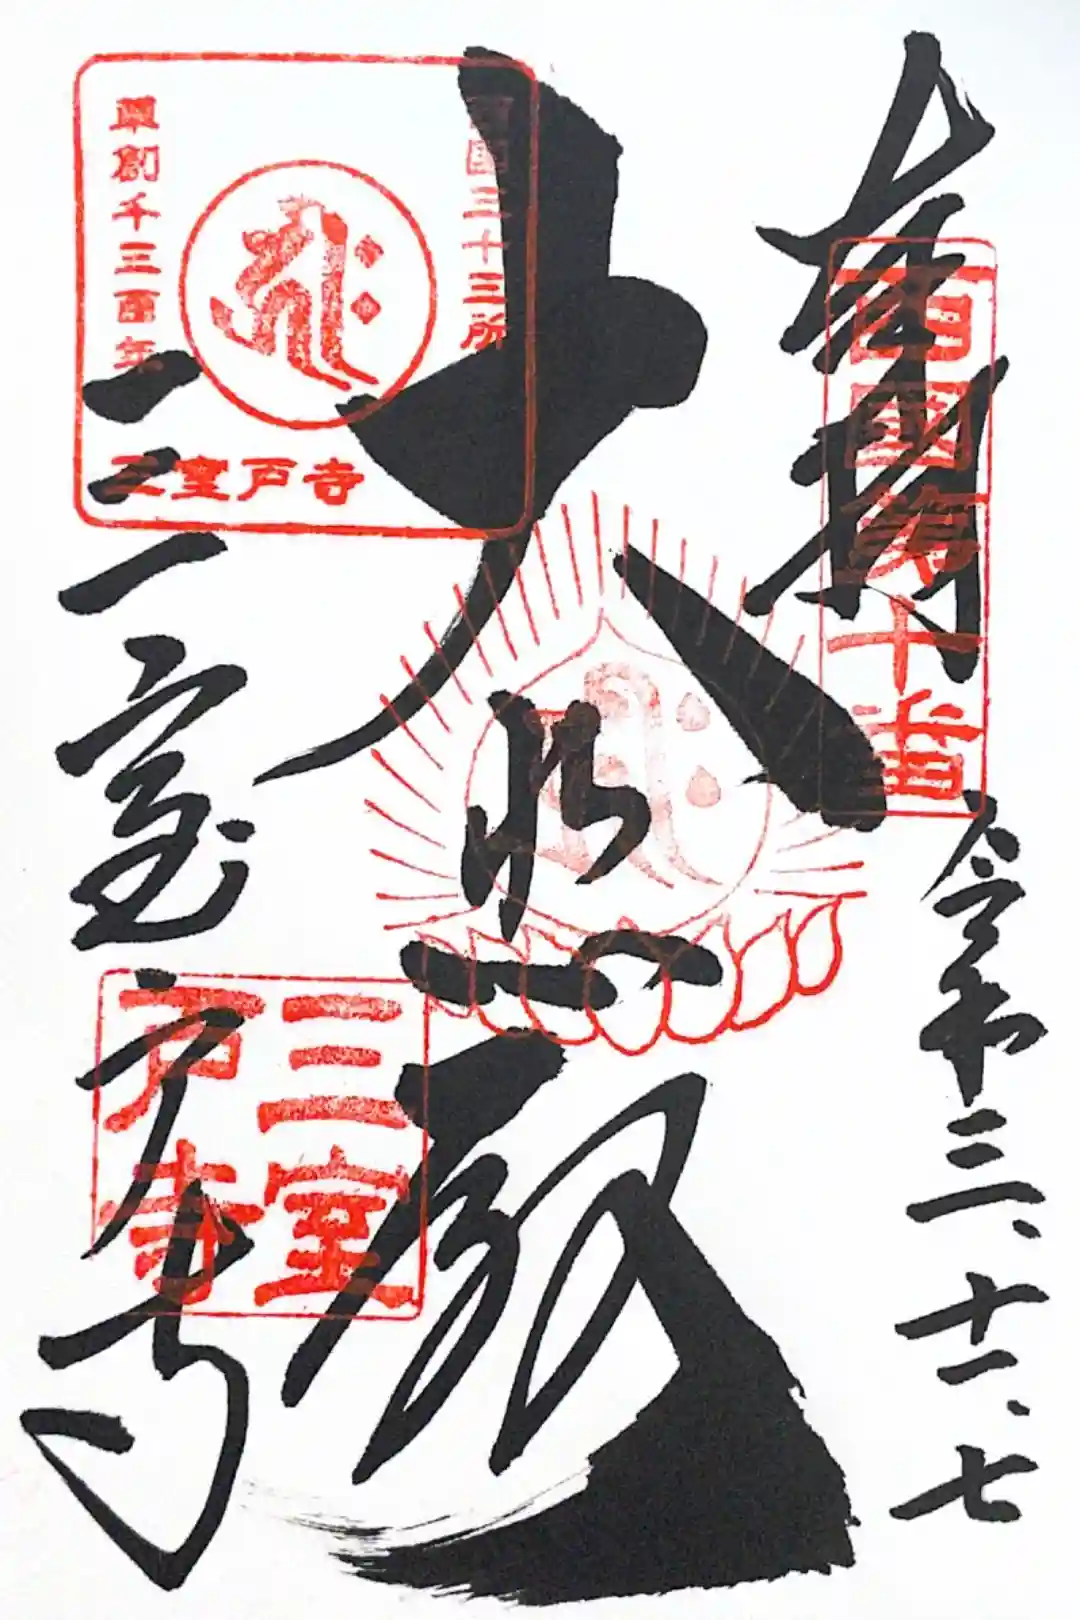 奉拝
西國第十番
令和三、十一、七
西國三十三所
草創千三百年
三室戸寺
大悲殿
三室戸寺
三室戸寺